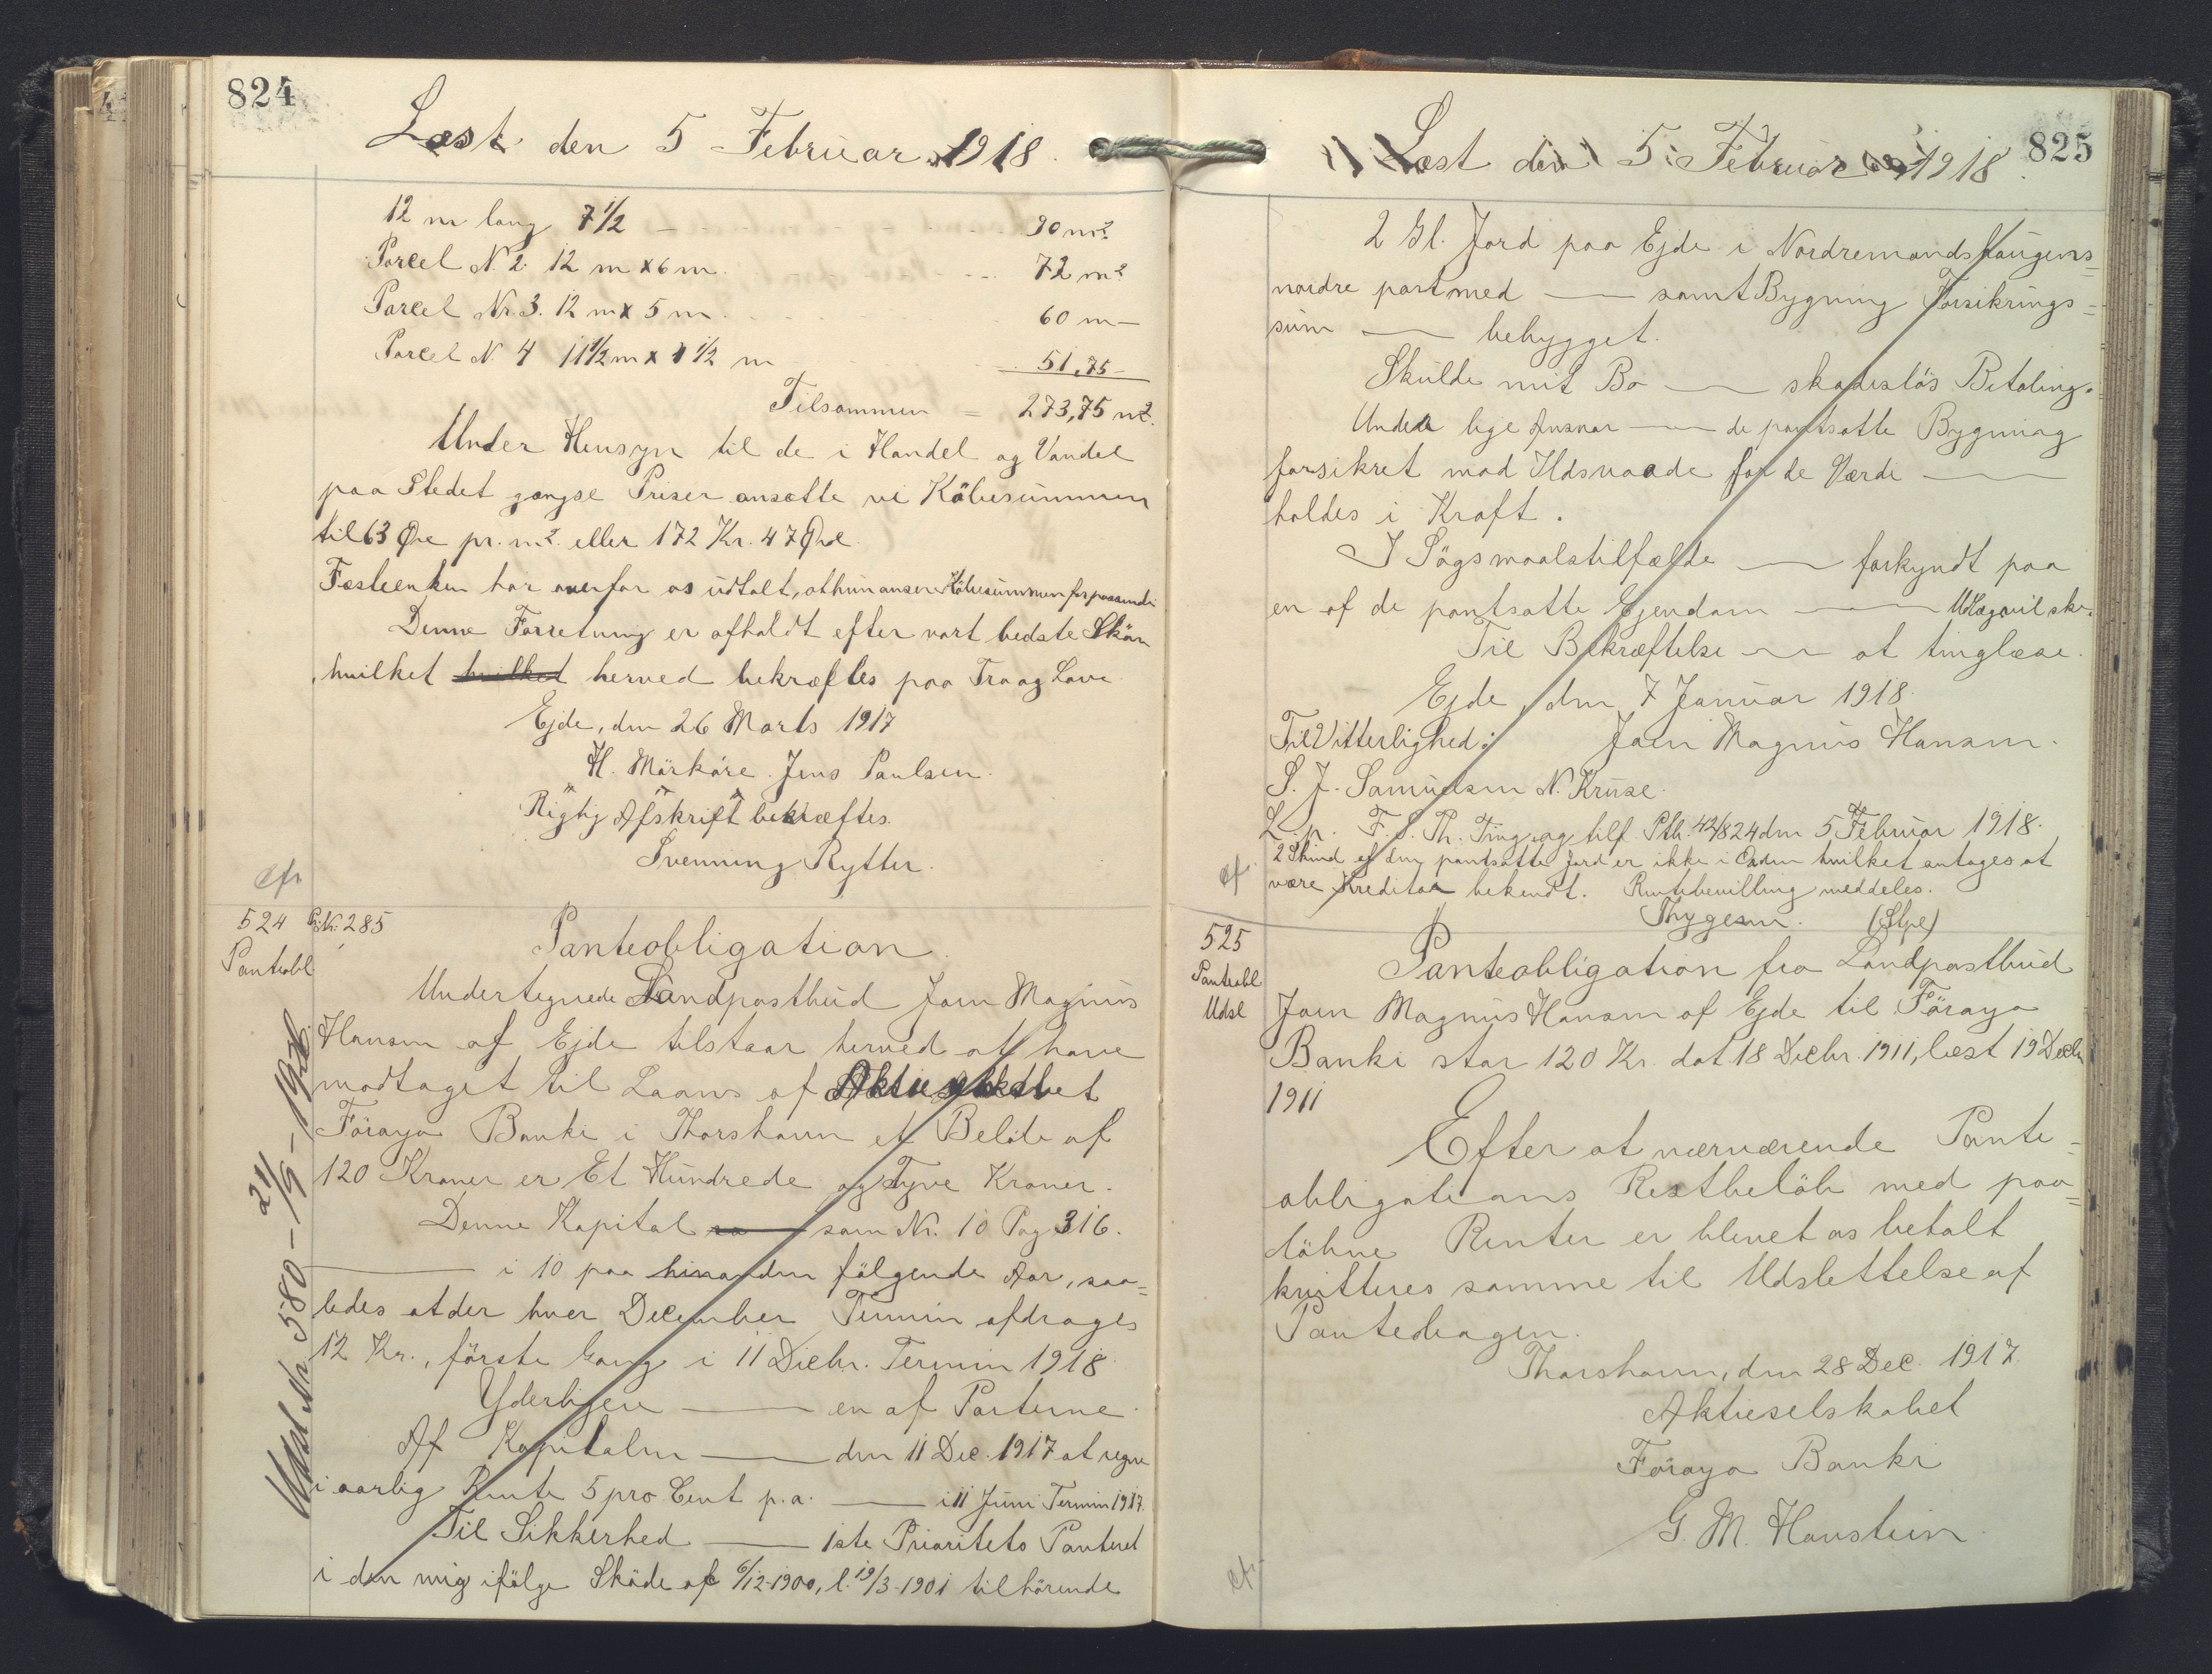 824
Læst den 5 Februar 1918.
12 m lang 7 1/2 90 m2
Parcel N. 2. 12 m x 6 m. 72 m2
Parcel Nr. 3. 12 m x 5 m. 60 m —
Parcel N. 4 11 1/2 m x 4 1/2 m 51,75 —
Tilsammen = 273,75 m2.
Under Hensyn til de i Handel og Vandel
paa Stedet gængse Priser ansætte vi Köbesummen
til 63 Øre pr. m2. eller 172 Kr. 47 Øre
Fæsteenken har overfor os udtalt, at hun anser Köbesummen for passende
Denne Forretning er afholdt efter vort bedste Skön
hvilket hvilket herved bekræftes paa Tro og Love.
Ejde, den 26 Marts 1917
H. Mörköre. Jens Paulsen.
Rigtig Afskrift bekræftes.
Svenning Rytter.
cfr
524
Panteobl
Pr. K. 285
Panteobligation
Undertegnede Landpostbud Joen Magnus
Hansen af Ejde tilstaar herved at have
modtaget til Laans af Aktieselskabet
Föroya Banki i Thorshavn et Belöb af
120 Kroner er Et Hundrede og Tyve Kroner.
Denne Kapital — som Nr. 10 Pag 316.
— i 10 paa hinanden fölgende Aar, saa=
ledes at der hver December Termin afdrages
12 Kr., förste Gang i 11 Decbr. Termin 1918
Yderligere — en af Parterne.
Af Kapitalen — den 11 Dec. 1917 at regne
i aarlig Rente 5 pro Cent p.a. — i 11 Juni Termin 1917.
Til Sikkerhed — 1ste Prioritets Panteret
i den mig ifölge Sköde af 6/12-1900, l. 19/3-1901 tilhörende
Udsl. Nr. 580 - 21/9 - 1926.
825
Læst den 5 Februar 1918.
2 Gl. Jord paa Ejde i Nordremandshaugens=
nordre part med — samt Bygning Forsikrings=
sum — bebygget.
Skulde mit Bo — skadeslös Betaling.
Under lige Ansvar — de pantsatte Bygning
forsikret mod Ildsvaade for de Værdi —
holdes i Kraft.
I Sögsmaalstilfælde — forkyndt paa
en af de pantsatte Ejendom — Udlæg vil ske.
Til Bekræftelse — at tinglæse.
Ejde, den 7 Januar 1918.
Til Vitterlighed: Joen Magnus Hansen.
S. J. Samuelsen N. Kruse.
L. p. F. S. Th. Ting og tilf. Ptb. 42/824 den 5 Februar 1918.
2 Skind af den pantsatte Jord er ikke i Orden hvilket antages at
være Kreditor bekendt. Rentebevilling meddeles.
Thygesen. (Stpl)
cfr.
525
Panteobl
Udsl
Panteobligation fra Landpostbud
Joen Magnus Hansen af Ejde til Föroya
Banki stor 120 Kr. dat 18 Decbr. 1911, læst 19 Decbr
1911
Efter at nærværende Pante=
obligations Restbelöb med paa=
löbne Renter er blevet os betalt
kvitteres samme til Udslettelse af
Pantebogen.
Thorshavn, den 28 Dec. 1917.
Aktieselskabet
Föroya Banki
G. M. Hanstein
cfr.